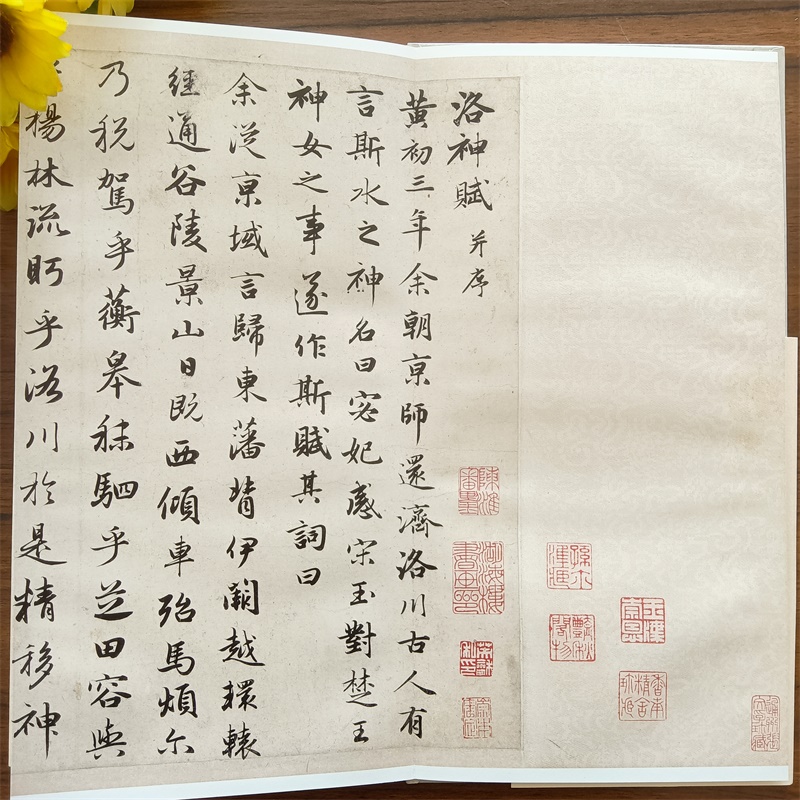 洛神賦 并序
黄初三年余朝京師還濟洛川古人有
言斯水之神名曰宓妃感宋玉對楚王
神女之事遂作斯賦其詞曰
余從京域言歸東藩背伊闕越轘轅
經通谷陵景山日既西傾車殆馬煩尔
乃税駕乎蘅皋秣駟乎芝田容與
楊林流眄乎洛川於是精移神